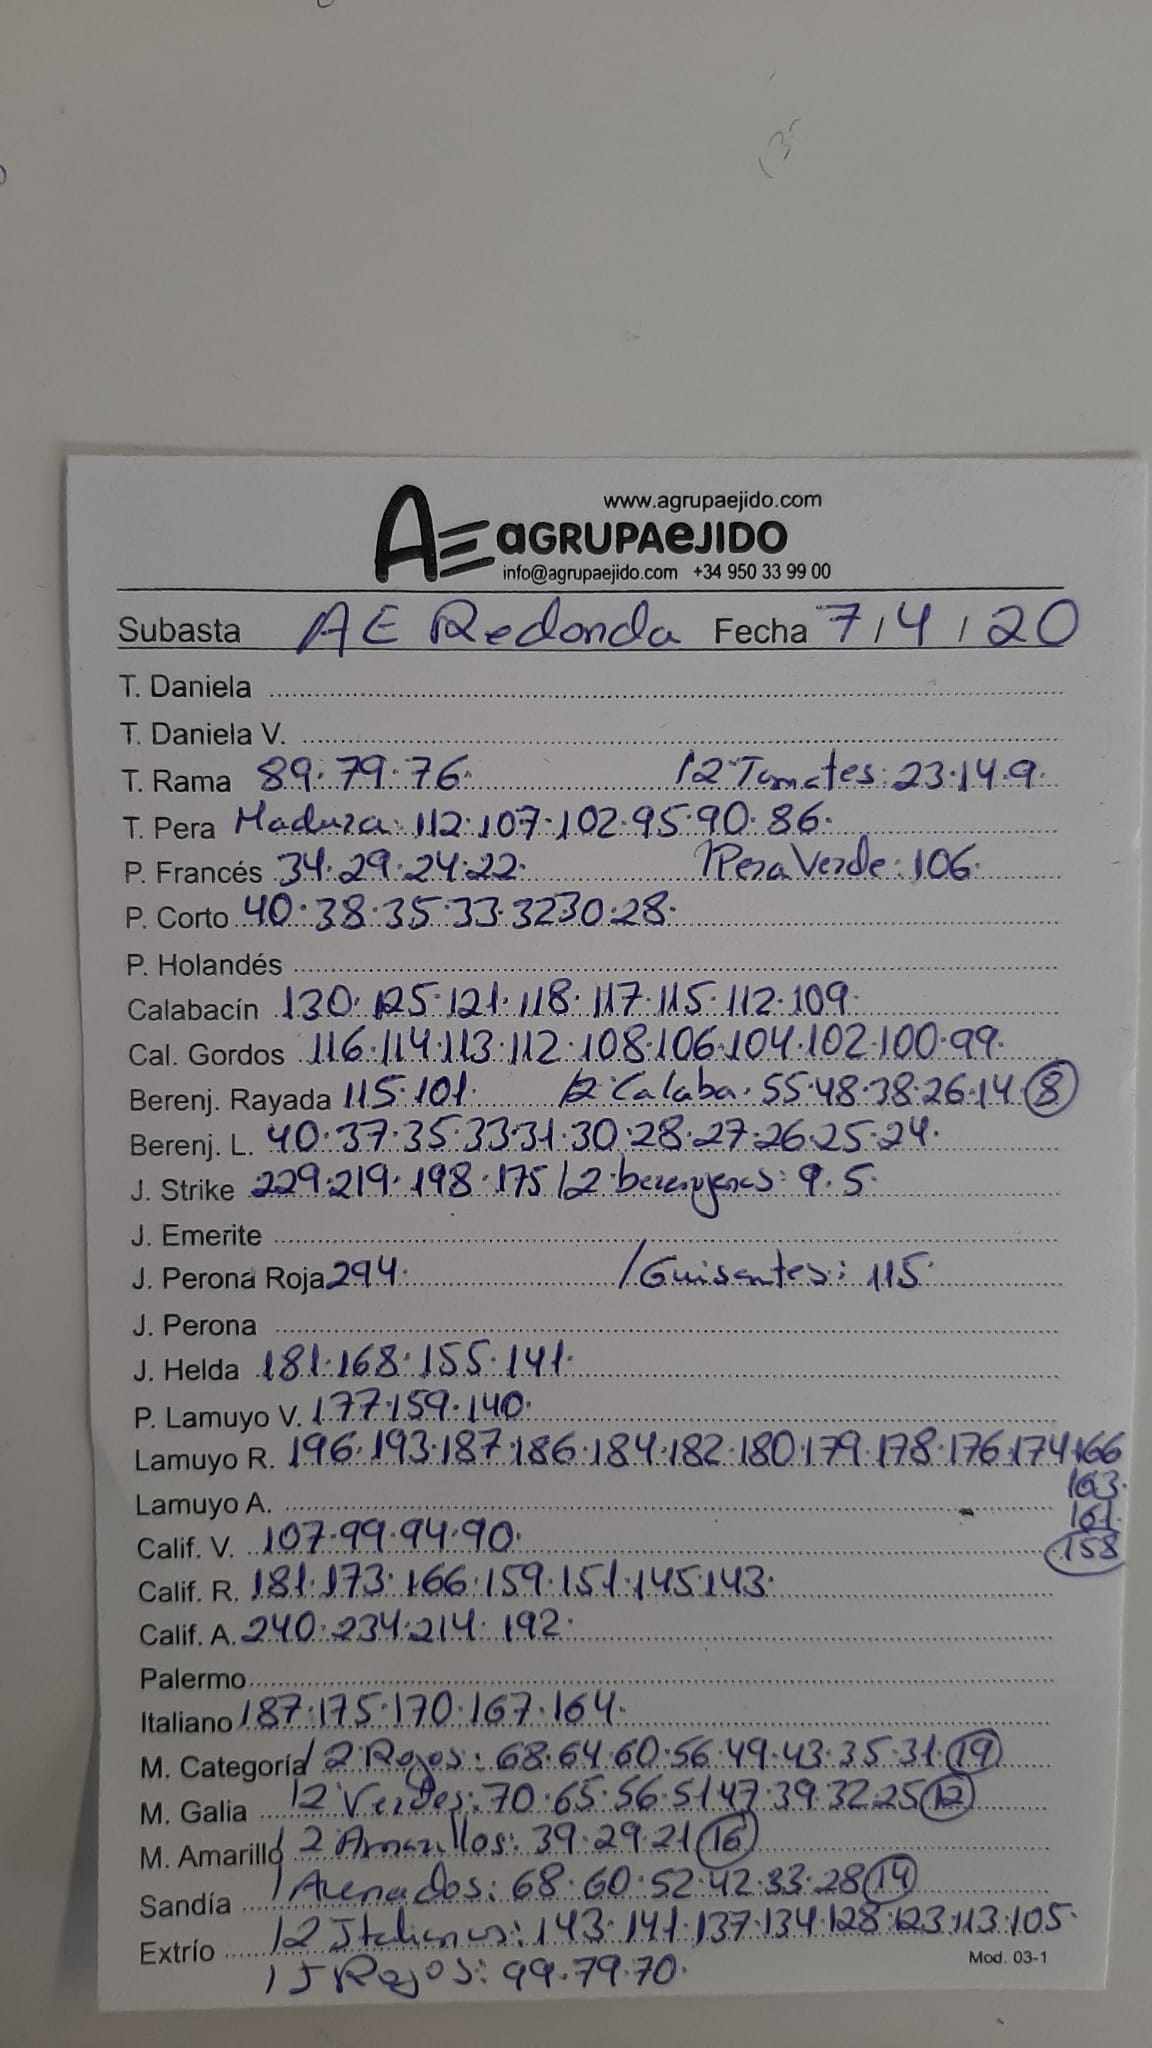 www.agrupaejido.com
AE aGRUPAeJIDO
info@agrupaejido.com +34 950 33 99 00
Subasta AE Redonda Fecha 7/4/20
T. Daniela
T. Daniela V.
T. Rama 89.79.76. /2 Tomates: 23.14.9.
T. Pera Madura: 112.107.102.95.90.86.
P. Francés 34.29.24.22. /Pera Verde: 106.
P. Corto 40.38.35.33.32.30.28.
P. Holandés
Calabacín 130.125.121.118.117.115.112.109.
Cal. Gordos 116.114.113.112.108.106.104.102.100.99.
Berenj. Rayada 115.101. /2 Calaba. 55.48.38.26.14.8
Berenj. L. 40.37.35.33.31.30.28.27.26.25.24.
J. Strike 229.219.198.175 /2 berenjenas: 9.5.
J. Emerite
J. Perona Roja 294. /Guisantes: 115.
J. Perona
J. Helda 181.168.155.141.
P. Lamuyo V. 177.159.140.
Lamuyo R. 196.193.187.186.184.182.180.179.178.176.174.166
163.
Lamuyo A.
161.
Calif. V. 107.99.94.90.
158
Calif. R. 181.173.166.159.151.145.143.
Calif. A. 240.234.214.192.
Palermo
Italiano 187.175.170.167.164.
M. Categoría /2 Rojos: 68.64.60.56.49.43.35.31.19
M. Galia /2 Verdes: 70.65.56.51.47.39.32.25.12
M. Amarillo /2 Amarillos: 39.29.21.16
Sandía /Asurados: 68.60.52.42.33.28.14
Extrío /2 Italianos: 143.141.137.134.128.123.113.105.
Mod. 03-1
/J Rojos: 99.79.70.